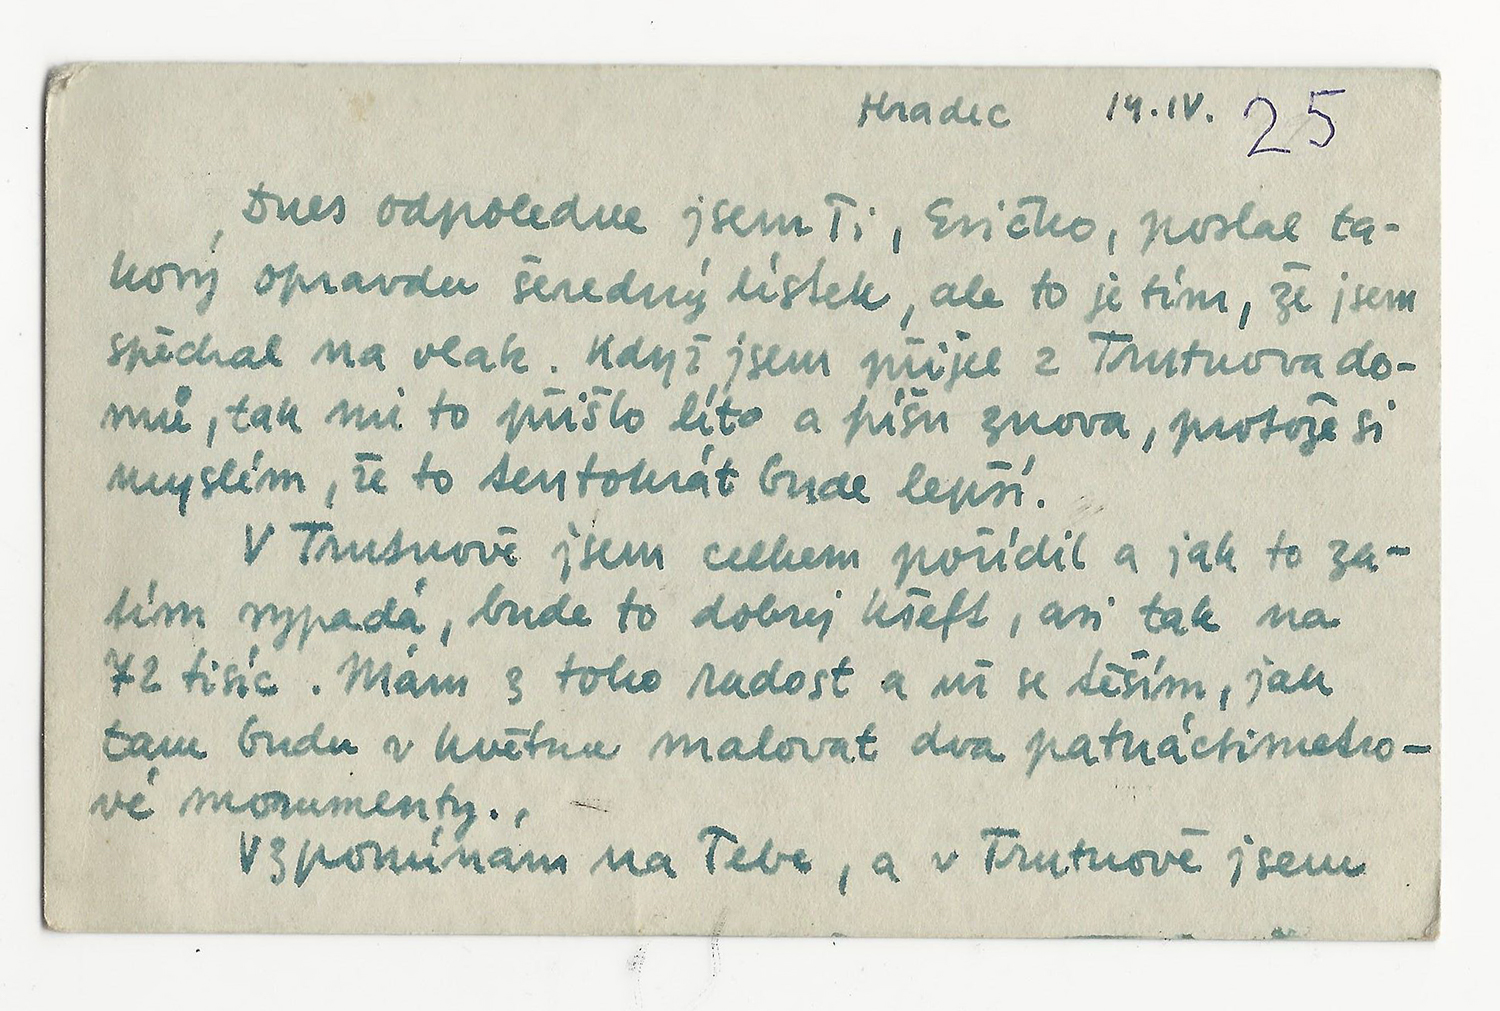 Hradec 14.IV. 25
Dnes odpoledne jsem Ti, Evičko, poslal ta-
kový opravdu šeredný lístek, ale to je tím, že jsem
spěchal na vlak. Když jsem přijel z Trutnova do-
mů, tak mi to přišlo líto a píšu znova, protože si
myslím, že to tentokrát bude lepší.
V Trutnově jsem celkem pořídil a jak to za-
tím vypadá, bude to dobrej kšeft, asi tak na
72 tisíc. Mám z toho radost a už se těším, jak
tam budu v květnu malovat dva patnáctimetro-
vé monumenty.
Vzpomínám na Tebe, a v Trutnově jsem